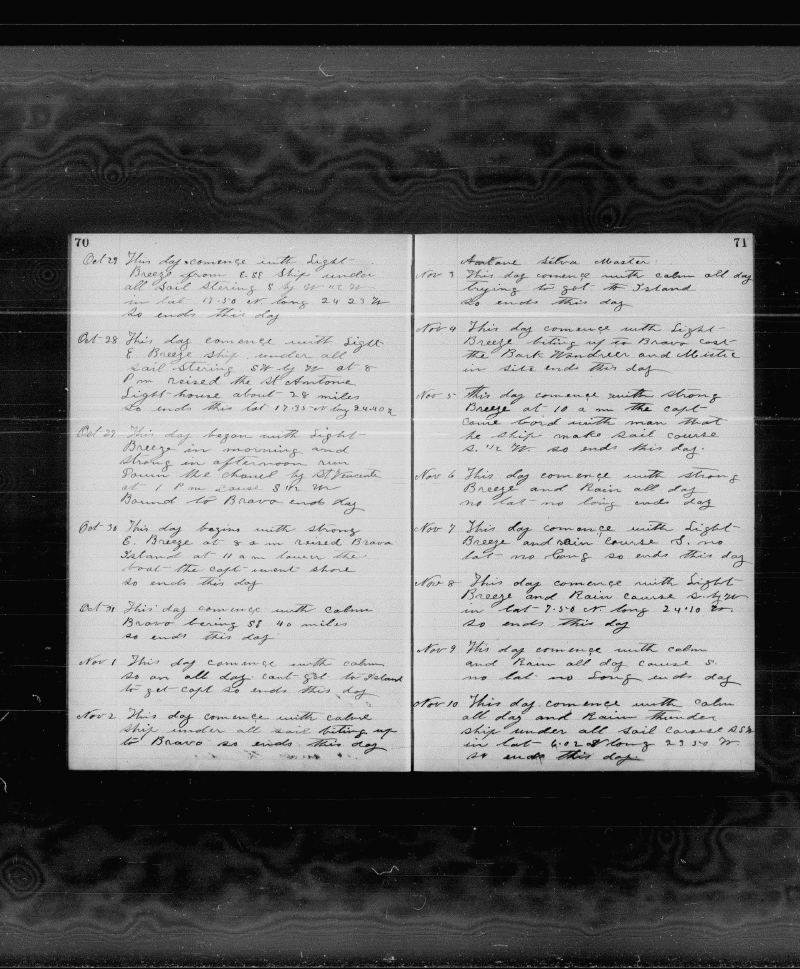 70
Oct 29 This day comence with Light
Breeze from E.SE Ship under
all Sail Stering S by W 1/2 W
in lat 17.50 N. long 24 23 W
so ends this day
Oct 28 This day comence with Light
E. Breeze ship under all
sail stering SW by W at 8
P m reised the St Antone
Light-house about 28 miles
So ends this lat 17.35 N long 24.40
Oct 29 This day began with Light
Breeze in morning and
strong in afternoon run
Down the chanel by St Vincente
at 1 P m course S 1/2 W
Bound to Brava ends day
Oct 30 This day begins with strong
E. Breeze at 8 a m reised Brava
Island at 11 a m lower the
boat the capt went shore
so ends this day
Oct 31 This day comence with calm
Brava bering SE 40 miles
so ends this day
Nov 1 This day comence with calm
so on all day cant get to Island
to get capt so ends this day
Nov 2 This day comence with calm
ship under all sail biting up
to Brava so ends this day
71
Antone Silva Master
Nov 3 This day comence with calm all day
trying to get to Island
so ends this day
Nov 4 This day comence with Light
Breeze biting up to Brava
the Bark Wanderer and
in site ends this day
Nov 5 this day comence with strong
Breeze at 10 a m the capt
came bord with man that
he ship make sail course
S. 1/2 W. so ends this day.
Nov 6 This day comence with strong
Breeze and Rain all day
no lat no long ends day
Nov 7 This day comence with Light
Breeze and rain course S. no
lat no long so ends this day
Nov 8 This day comence with Light
Breeze and Rain course S. by W
in lat 7.50 N long 24.10 W.
so ends this day
Nov 9 This day comence with calm
and Rain all day course S.
no lat no Long ends day
Nov 10 This day comence with calm
all day and Rain thunder
ship under all sail course SSW
in lat 6.02 long 23 50 W
so ends this day